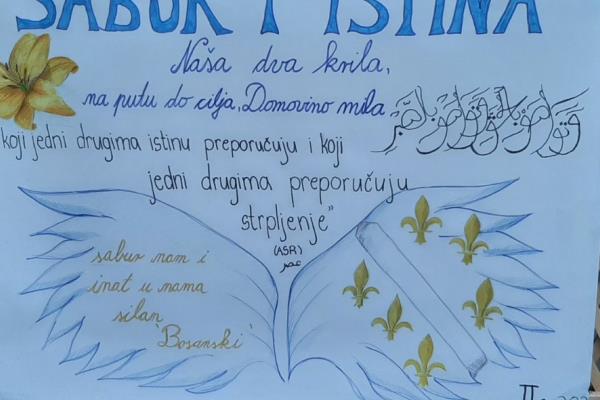 SABUR I ISTINA
Naša dva krila,
na putu do cilja, Domovino mila
وَتَوَاصَوْا بِالْحَقِّ وَتَوَاصَوْا بِالصَّبْرِ
koji jedni drugima istinu preporučuju i koji
jedni drugima preporučuju
strpljenje"
(ASR)
عصر
sabur nam i
inat u nama
silan
'Bosanski'